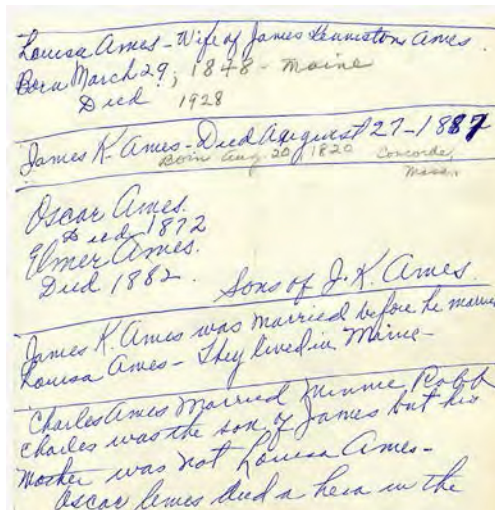 Louisa Ames - Wife of James Kenniston Ames
Born March 29, 1848 - Maine
Died 1928
James K. Ames - Died August 27 - 1887
Born Aug. 20, 1820 Concorde,
Mass.
Oscar Ames.
Died 1872
Elmer Ames.
Died 1882.
Sons of J. K. Ames.
James K. Ames was married before he married
Louisa Ames - They lived in Maine -
Charles Ames Married Minnie Robb
Charles was the son of James but his
Mother was not Louisa Ames -
Oscar Ames died a hero in the